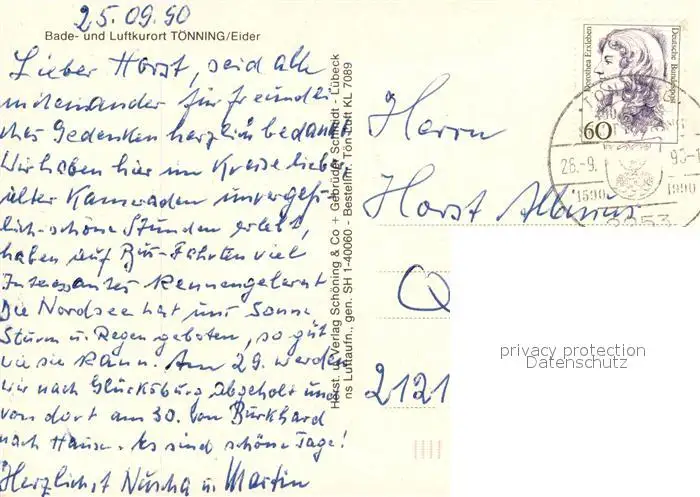 25.09.90
Bade- und Luftkurort TÖNNING/Eider
Lieber Horst, seid alle
miteinander für freundli
ches Gedenken herzlich bedankt.
Wir haben hier im Kreise lieber
alter Kameraden unvergeß-
lich-schöne Stunden erlebt,
haben auf Bus-Fahrten viel
Interessantes kennengelernt
Die Nordsee hat uns Sonne
Sturm u. Regen geboten, so gut
wie sie kann. Am 29. werden
wir nach Glücksburg abgeholt und
von dort am 30. von Burkhard
nach Hause. Es sind schöne Tage!
Herzlichst u. Martin
Verlag Schöning & Co + Gebrüder Schmidt - Lübeck
ns Luftaufn., gen. SH 1-40060 - Bestellnr. Tön Luft KL 7089
Dorothea Erxleben
Deutsche Bundespost
60
TÖNNING
26.-9.
1590
1990
Herrn
Horst
Q
2121
privacy protection
Datenschutz